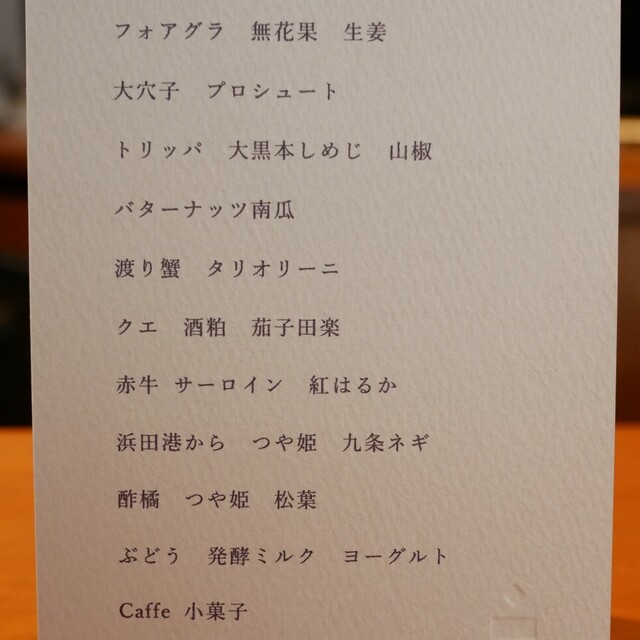 フォアグラ　無花果　生姜
大穴子　プロシュート
トリッパ　大黒本しめじ　山椒
バターナッツ南瓜
渡り蟹　タリオリーニ
クエ　酒粕　茄子田楽
赤牛 サーロイン　紅はるか
浜田港から　つや姫　九条ネギ
酢橘　つや姫　松葉
ぶどう　発酵ミルク　ヨーグルト
Caffe 小菓子